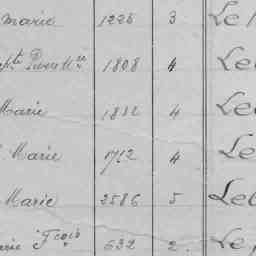 marie 1225 3 Le
pte Pierre M 1808 4 Le
Marie 1832 4 Le
Marie 1712 4 Le
Marie 2586 5 Le
arie Fçois 632 2 Le